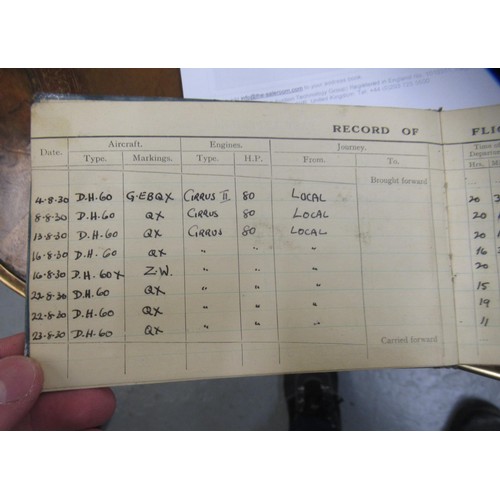 RECORD OF FLI
Date. Aircraft. Engines. Journey. Time of
Type. Markings. Type. H.P. From. To. Hrs.
Brought forward
4-8-30 D.H.60 G-EBQX CIRRUS II 80 LOCAL 20
8-8-30 D.H.60 QX CIRRUS 80 LOCAL 20
13-8-30 D.H.60 QX CIRRUS 80 LOCAL 20
16-8-30 D.H.60 QX " " " 16
16-8-30 D.H.60X Z.W. " " 20
22-8-30 D.H.60 QX " " 15
22-8-30 D.H.60 QX " " 19
23-8-30 D.H.60 QX " " 11
Carried forward